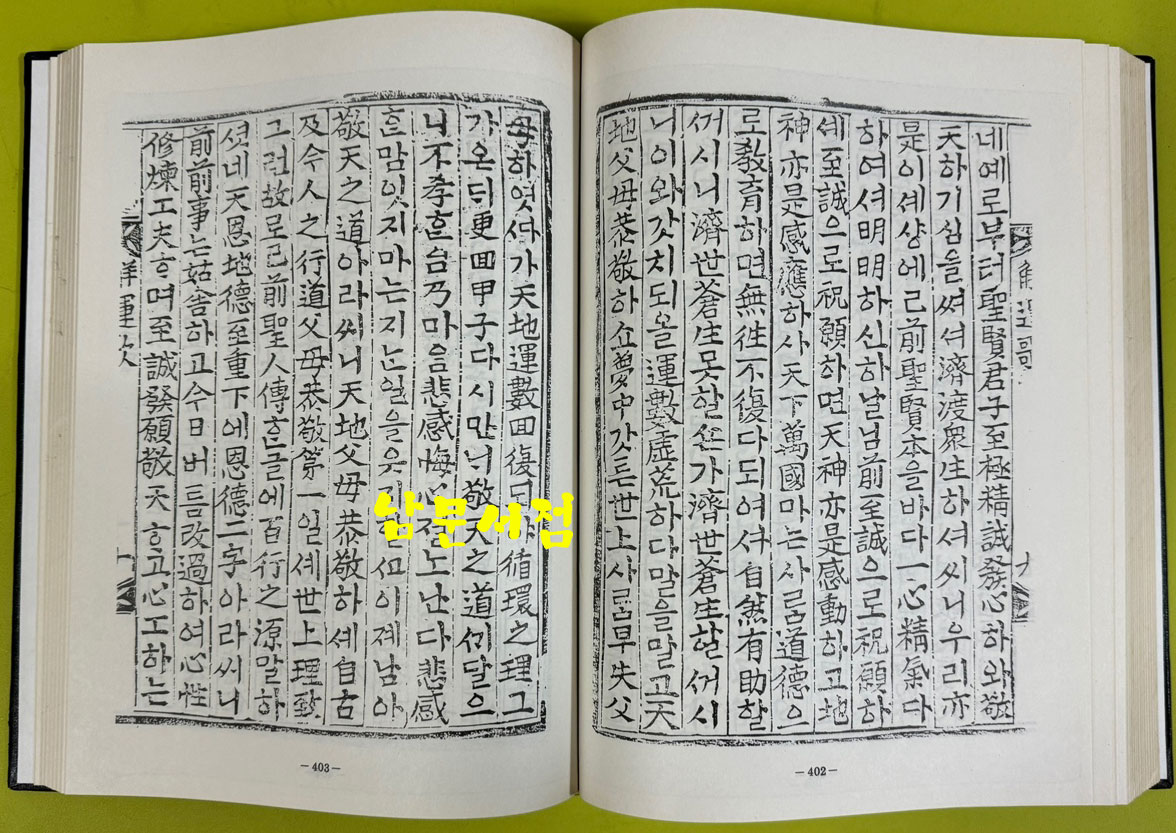 네예로부터聖賢君子至極精誠發心하와敬
天하기심을써셔濟渡衆生하셔씨니우리亦
是이셰샹에已前聖賢本을바다一心精氣다
하여셔明明하신하날님前至誠으로祝願하
셰至誠으로祝願하면天神亦是感動하고地
神亦是感應하사天下萬國마는사람道德으
로敎育하면無徃不復다되여셔自然有助할
꺼시니濟世蒼生못할쇼가濟世蒼生할꺼시
니이와갓치되올運數虛荒하다말을말고天
地父母恭敬하쇼夢中갓든世上사람早失父
解運歌
九
—402—
母하엿다가天地運數回復 循環之理그
가온듸更回甲子다시만너敬天之道 달으
니不孝흔 마음悲感悔心졀노난다悲感
흔맘잇지마는지는일을웃지할 이졔남아
敬天之道아라씨니天地父母恭敬하셰自古
及今人之行道父母恭敬第一일셰世上理致
그러故로已前聖人傳흔글에百行之源말하
셧네天恩地德至重下에恩德二字아라씨니
前前事는姑舍하고今日버틈改過하여心性
修煉工夫하며至誠發願敬天하고心工하는
解運歌
十
—403—
남문서점